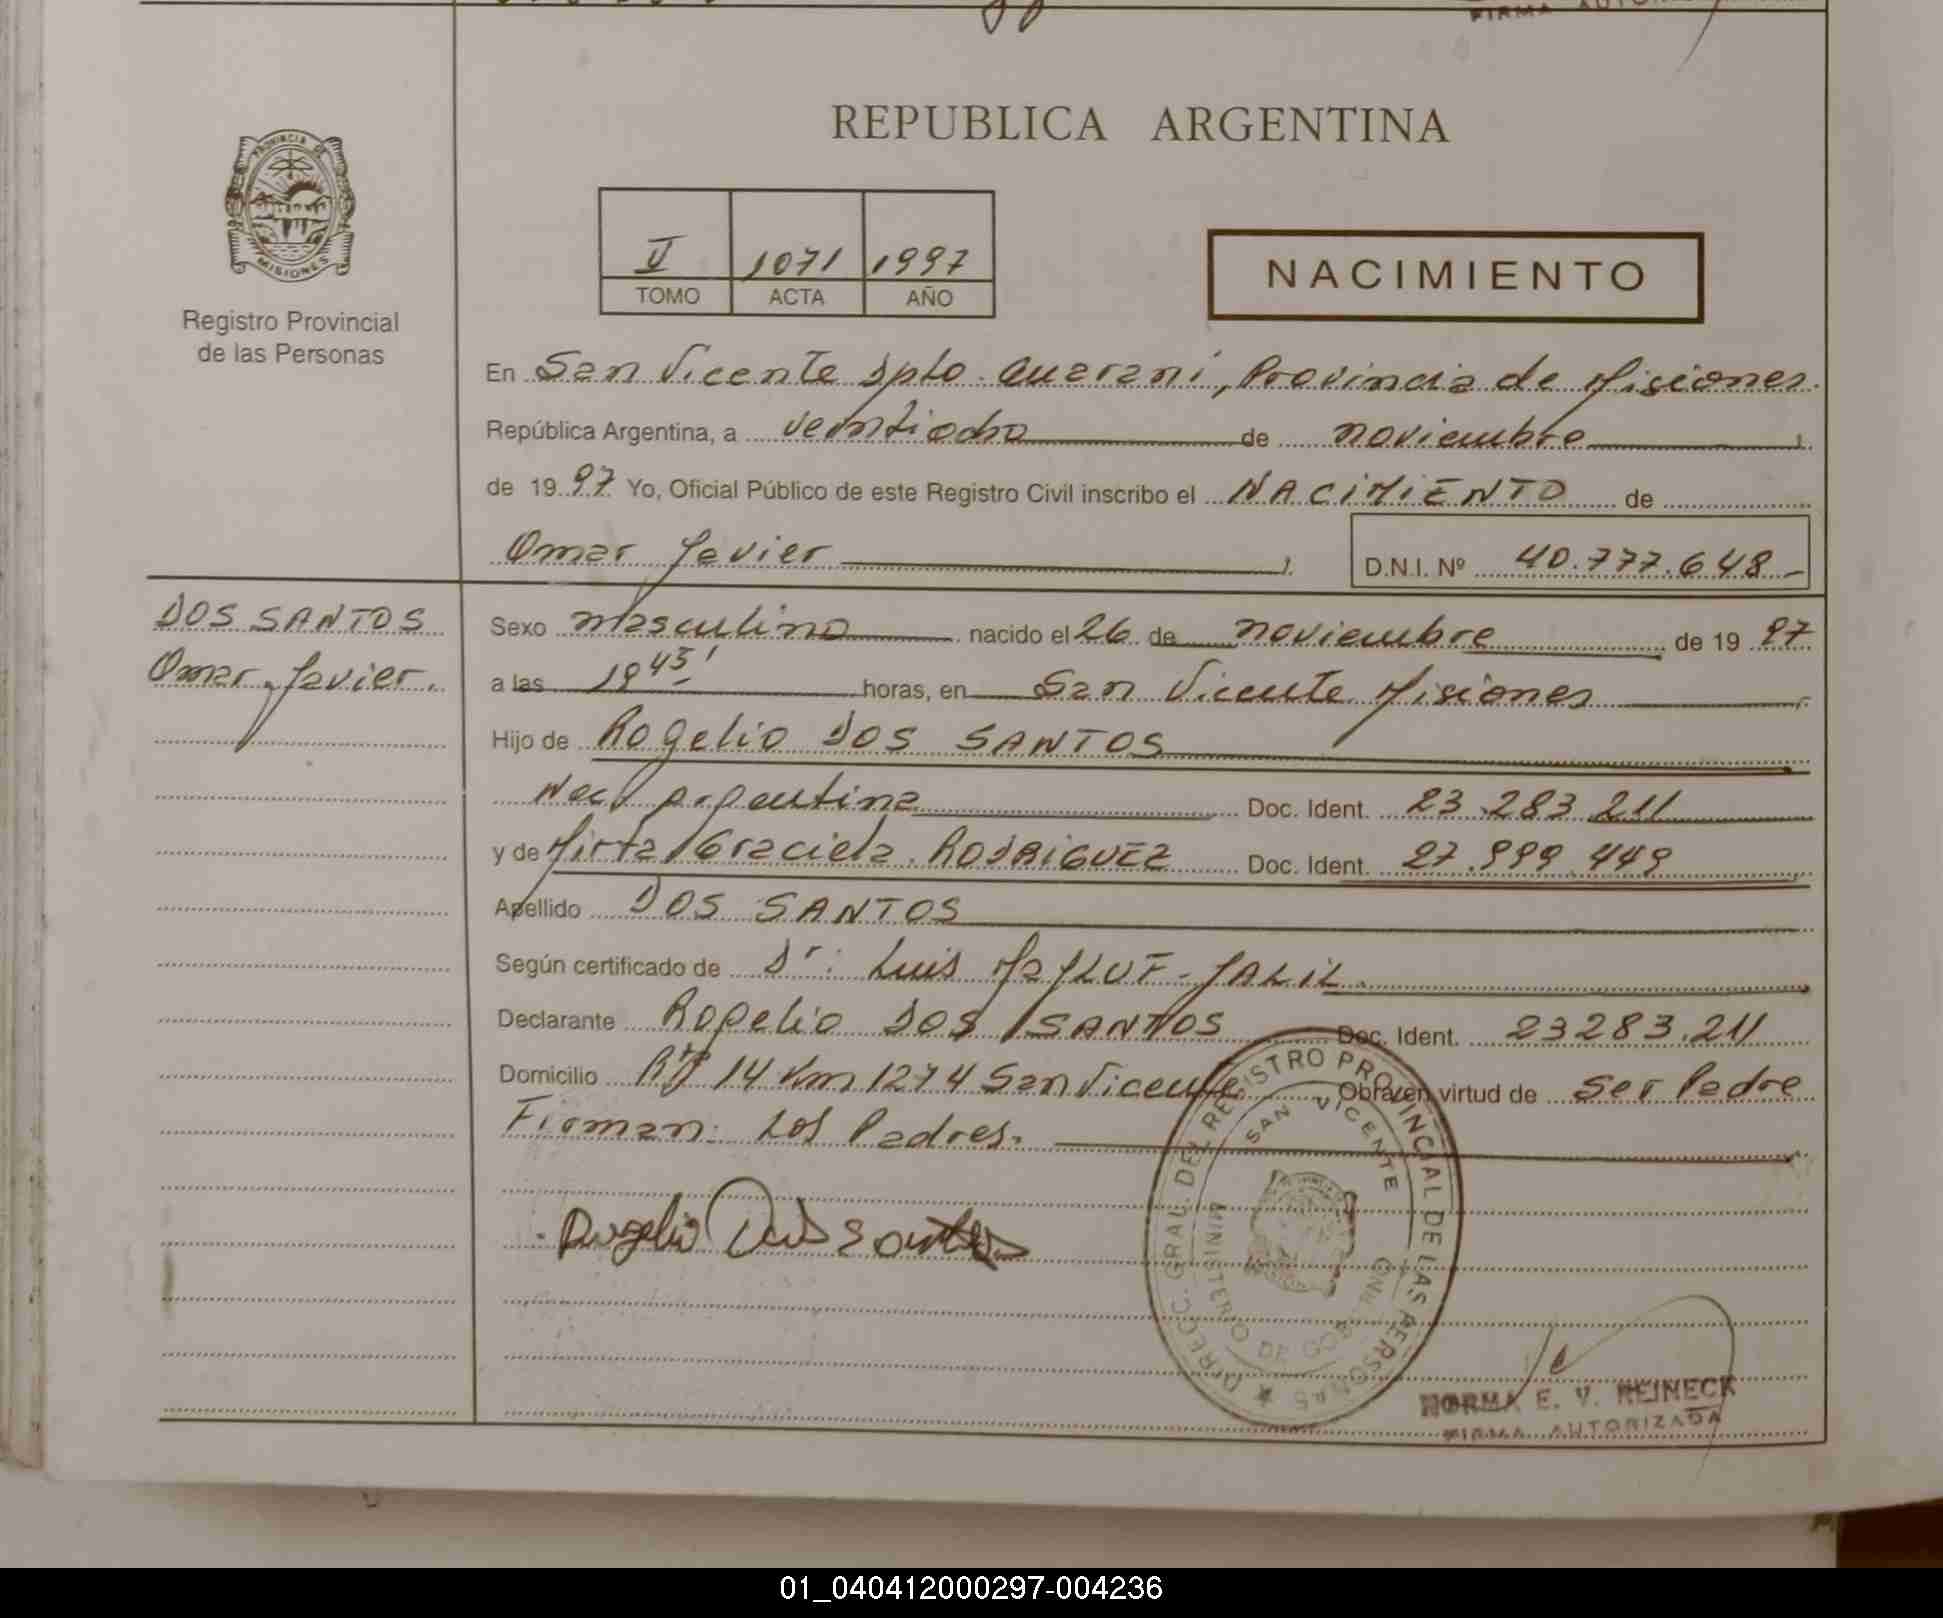 FIRMA AUTORI
REPUBLICA ARGENTINA
PROVINCIA DE
MISIONES
Registro Provincial
de las Personas
V 1071 1997
TOMO ACTA AÑO
NACIMIENTO
En San Vicente Dpto. Guaraní, Provincia de Misiones.
República Argentina, a veintiocho de noviembre
de 1997 Yo, Oficial Público de este Registro Civil inscribo el NACIMIENTO de
Omar Javier D.N.I. Nº 40.777.648
DOS SANTOS
Omar Javier.
Sexo masculino nacido el 26 de noviembre de 1997
a las 18 45' horas, en San Vicente Misiones
Hijo de Rogelio DOS SANTOS
Nac. argentina Doc. Ident. 23.283.211
y de Mirta Graciela RODRIGUEZ Doc. Ident. 27.999.449
Apellido DOS SANTOS
Según certificado de Dr: Luis MaJLUF-JALIL
Declarante Rogelio DOS SANTOS Doc. Ident. 23283.211
Domicilio 14 Km 1274 San Vicente Obra en virtud de ser Padre
Firman: Los Padres.
Rogelio Dos Santos
DIRECC. GRAL. DEL REGISTRO PROVINCIAL DE LAS PERSONAS
SAN VICENTE
MINISTERIO DE GOBIERNO
NORMA E. V. REINECK
FIRMA AUTORIZADA
01_040412000297-004236